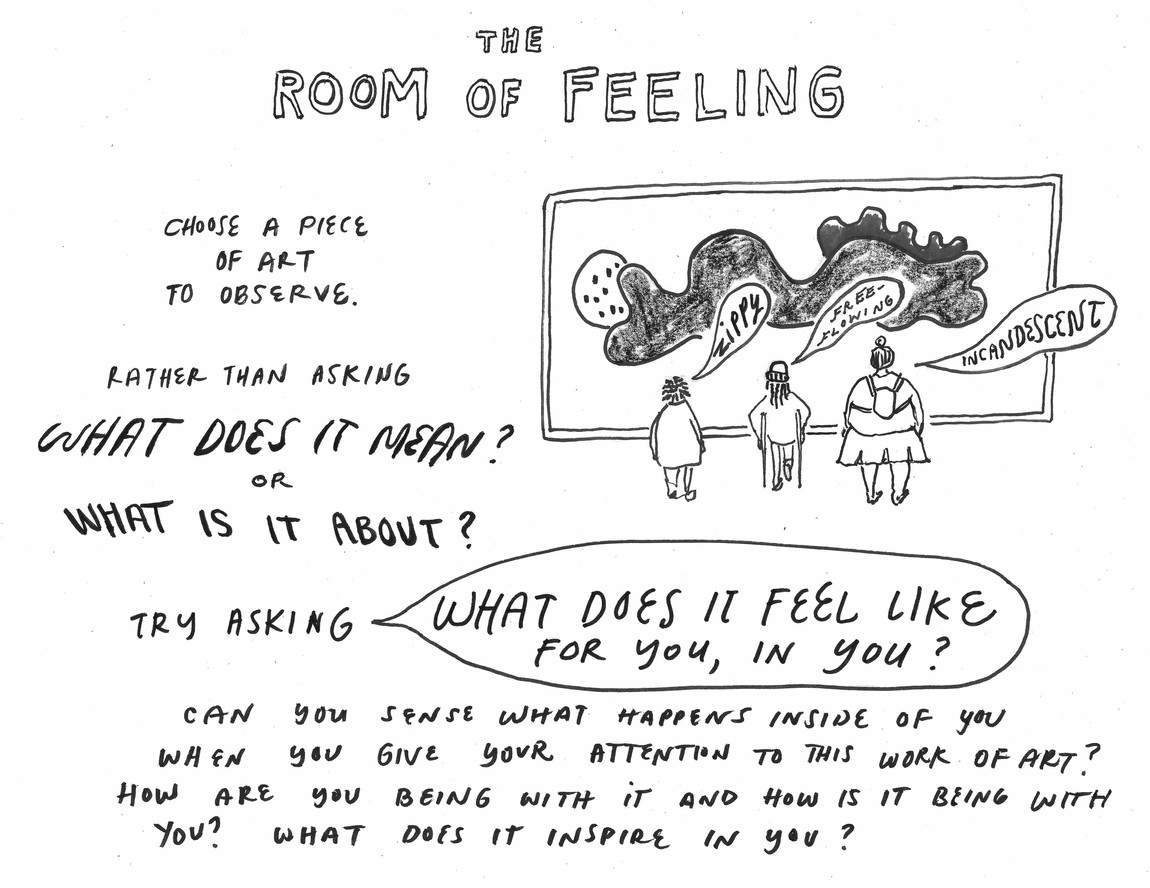 THE
ROOM OF FEELING
CHOOSE A PIECE
OF ART
TO OBSERVE.
RATHER THAN ASKING
WHAT DOES IT MEAN?
OR
WHAT IS IT ABOUT?
ZIPPY
FREE-
FLOWING
INCANDESCENT
TRY ASKING
WHAT DOES IT FEEL LIKE
FOR YOU, IN YOU?
CAN YOU SENSE WHAT HAPPENS INSIDE OF YOU
WHEN YOU GIVE YOUR ATTENTION TO THIS WORK OF ART?
HOW ARE YOU BEING WITH IT AND HOW IS IT BEING WITH
YOU? WHAT DOES IT INSPIRE IN YOU?